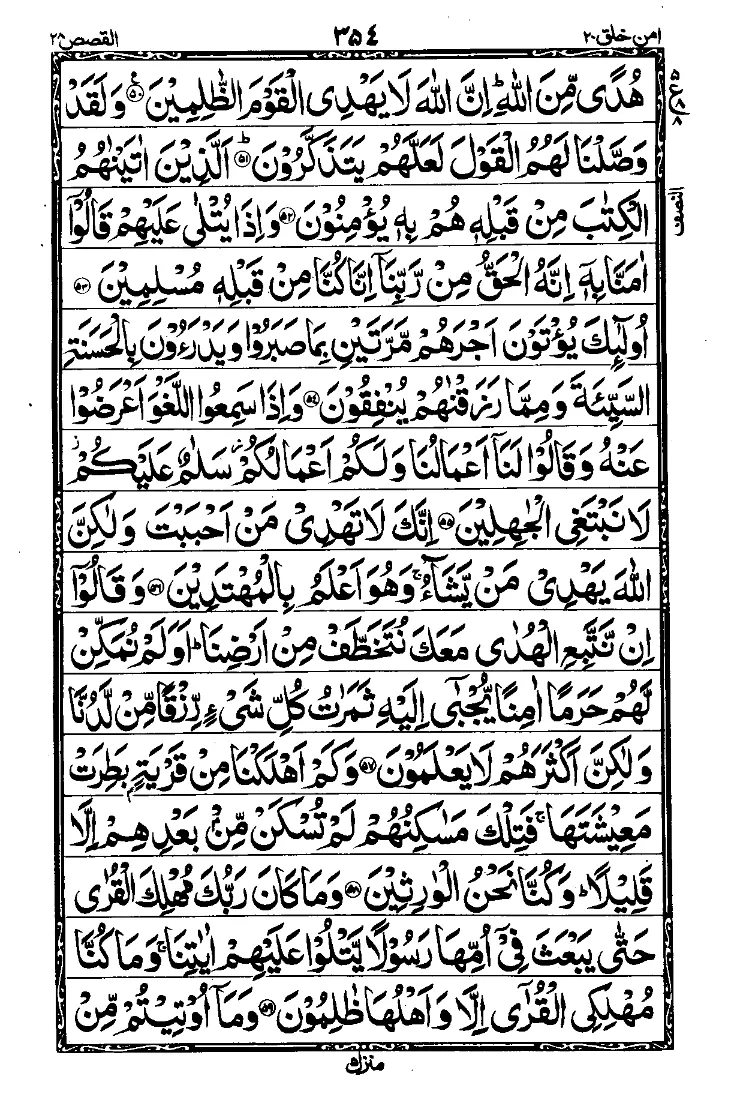 امن خلق ۲۰ ۳۵٤ القصص ۲۸
هُدًى مِّنَ اللّٰهِ ؕ اِنَّ اللّٰهَ لَا يَهْدِى الْقَوْمَ الظّٰلِمِيْنَ ﴿۵۰﴾ وَ لَقَدْ
وَصَّلْنَا لَهُمُ الْقَوْلَ لَعَلَّهُمْ يَتَذَكَّرُوْنَ ؕ﴿۵۱﴾ اَلَّذِيْنَ اٰتَيْنٰهُمُ
الْكِتٰبَ مِنْ قَبْلِهٖ هُمْ بِهٖ يُؤْمِنُوْنَ ﴿۵۲﴾ وَ اِذَا يُتْلٰى عَلَيْهِمْ قَالُوْۤا
اٰمَنَّا بِهٖۤ اِنَّهُ الْحَقُّ مِنْ رَّبِّنَاۤ اِنَّا كُنَّا مِنْ قَبْلِهٖ مُسْلِمِيْنَ ﴿۵۳﴾
اُولٰٓئِكَ يُؤْتَوْنَ اَجْرَهُمْ مَّرَّتَيْنِ بِمَا صَبَرُوْا وَ يَدْرَءُوْنَ بِالْحَسَنَةِ
السَّيِّئَةَ وَ مِمَّا رَزَقْنٰهُمْ يُنْفِقُوْنَ ﴿۵۴﴾ وَ اِذَا سَمِعُوا اللَّغْوَ اَعْرَضُوْا
عَنْهُ وَ قَالُوْا لَنَاۤ اَعْمَالُنَا وَ لَكُمْ اَعْمَالُكُمْ ؗ سَلٰمٌ عَلَيْكُمْ ؗ
لَا نَبْتَغِى الْجٰهِلِيْنَ ﴿۵۵﴾ اِنَّكَ لَا تَهْدِىْ مَنْ اَحْبَبْتَ وَ لٰكِنَّ
اللّٰهَ يَهْدِىْ مَنْ يَّشَآءُ ۚ وَ هُوَ اَعْلَمُ بِالْمُهْتَدِيْنَ ﴿۵۶﴾ وَ قَالُوْۤا
اِنْ نَّتَّبِعِ الْهُدٰى مَعَكَ نُتَخَطَّفْ مِنْ اَرْضِنَا ؕ اَوَ لَمْ نُمَكِّنْ
لَّهُمْ حَرَمًا اٰمِنًا يُّجْبٰٓى اِلَيْهِ ثَمَرٰتُ كُلِّ شَىْءٍ رِّزْقًا مِّنْ لَّدُنَّا
وَ لٰكِنَّ اَكْثَرَهُمْ لَا يَعْلَمُوْنَ ﴿۵۷﴾ وَ كَمْ اَهْلَكْنَا مِنْ قَرْيَةٍۭ بَطِرَتْ
مَعِيْشَتَهَا ۚ فَتِلْكَ مَسٰكِنُهُمْ لَمْ تُسْكَنْ مِّنْۢ بَعْدِهِمْ اِلَّا
قَلِيْلًا ؕ وَ كُنَّا نَحْنُ الْوٰرِثِيْنَ ﴿۵۸﴾ وَ مَا كَانَ رَبُّكَ مُهْلِكَ الْقُرٰى
حَتّٰى يَبْعَثَ فِىْۤ اُمِّهَا رَسُوْلًا يَّتْلُوْا عَلَيْهِمْ اٰيٰتِنَا ۚ وَ مَا كُنَّا
مُهْلِكِى الْقُرٰٓى اِلَّا وَ اَهْلُهَا ظٰلِمُوْنَ ﴿۵۹﴾ وَ مَاۤ اُوْتِيْتُمْ مِّنْ
منزل ۵
ع
۵
۸
۸
النصف